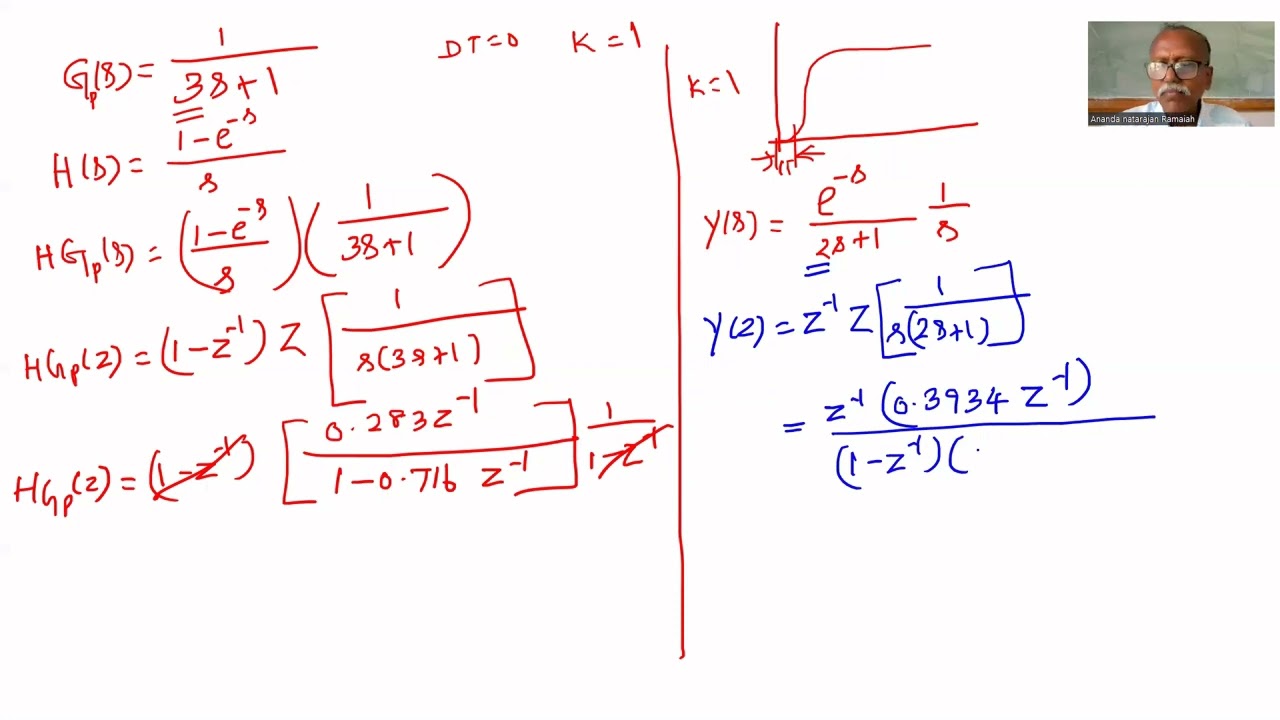 Gp(s) = 1 / (3s+1)
DT=0 K=1
H(s) = (1-e^-s) / s
HGp(s) = ((1-e^-s) / s) (1 / (3s+1))
HGp(z) = (1-z^-1) Z [1 / (s(3s+1))]
HGp(z) = (1-z^-1) [0.283z^-1 / (1-0.716 z^-1)] 1 / (1-z^-1)
K=1
Y(s) = (e^-s / (2s+1)) (1 / s)
Y(z) = z^-1 Z [1 / (s(2s+1))]
= z^-1 (0.3934 z^-1) / (1-z^-1)(
Ananda natarajan Ramaiah